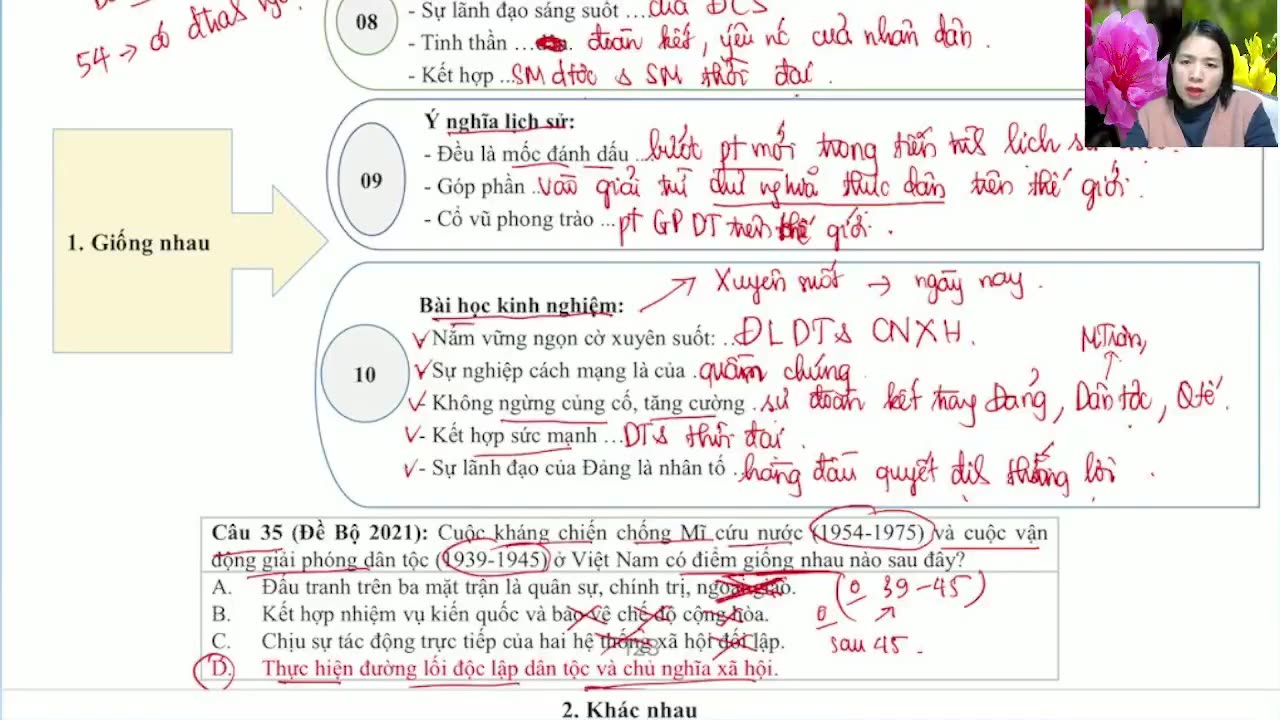 54 → có
08
- Sự lãnh đạo sáng suốt ... của ĐCS
- Tinh thần ... đoàn kết, yêu nc của nhân dân .
- Kết hợp .. SM dtộc & SM thời đại .
1. Giống nhau
09
Ý nghĩa lịch sử:
- Đều là mốc đánh dấu .. bước pt mới trong tiến lịch
- Góp phần .. vào giải trừ chủ nghĩa thực dân trên thế giới .
- Cổ vũ phong trào ... pt GPDT trên thế giới .
10
Bài học kinh nghiệm: → Xuyên suốt → ngày nay .
- Nắm vững ngọn cờ xuyên suốt: .. ĐLDT & CNXH .
- Sự nghiệp cách mạng là của . quần chúng
- Không ngừng củng cố, tăng cường . sự đoàn kết trong Đảng, Dân tộc, Qtế .
- Kết hợp sức mạnh ... DT & thời đại .
- Sự lãnh đạo của Đảng là nhân tố .. hàng đầu quyết thắng lợi .
Câu 35 (Đề Bộ 2021): Cuộc kháng chiến chống Mĩ cứu nước (1954-1975) và cuộc vận
động giải phóng dân tộc (1939-1945) ở Việt Nam có điểm giống nhau nào sau đây?
A. Đấu tranh trên ba mặt trận là quân sự, chính trị, ngoại giao. (0 39-45)
B. Kết hợp nhiệm vụ kiến quốc và bảo vệ chế độ cộng hòa.
C. Chịu sự tác động trực tiếp của hai hệ thống xã hội đối lập. sau 45 .
D. Thực hiện đường lối độc lập dân tộc và chủ nghĩa xã hội.
2. Khác nhau